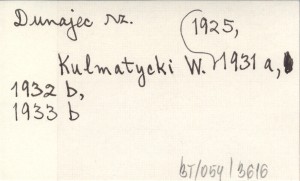 Dunajec rz.
1925,
Kułmatycki W. 1931 a,
1932 b,
1933 b
BT/054/3616